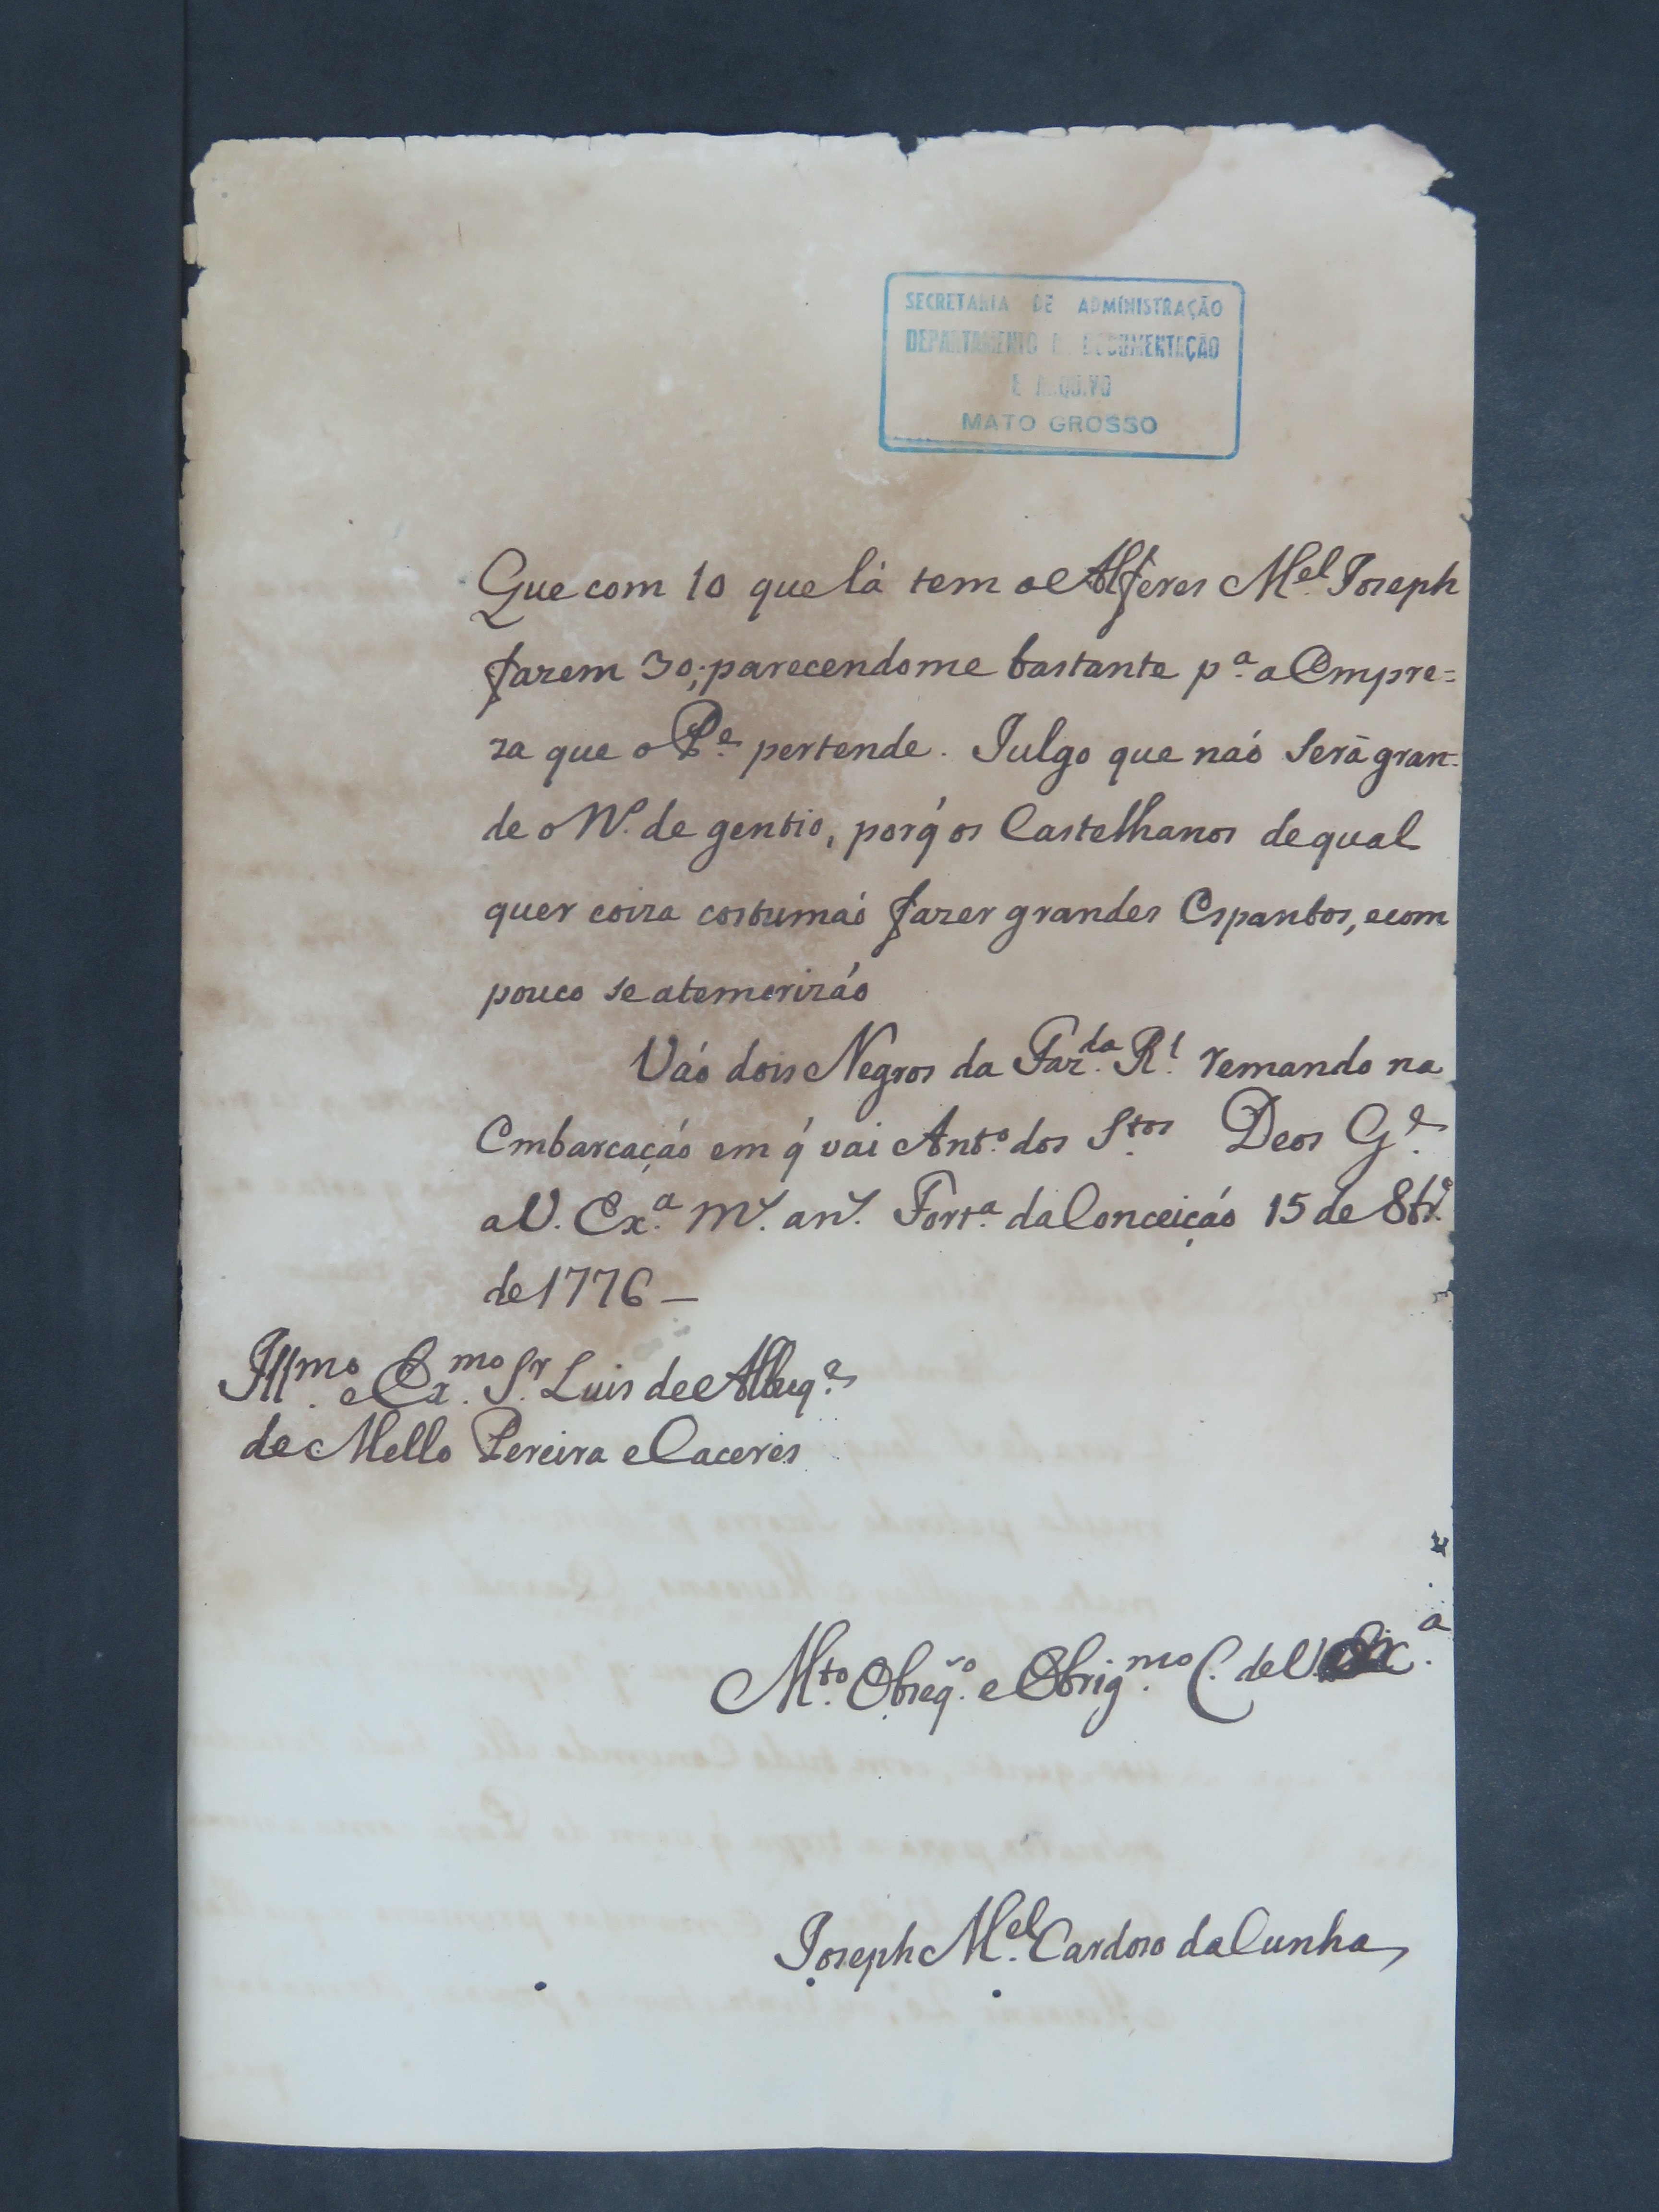 SECRETARIA DE ADMINISTRAÇÃO
DEPARTAMENTO DE DOCUMENTAÇÃO
E ARQUIVO
MATO GROSSO
Que com 10 que lá tem o Alferes M.el Joseph
fazem 30; parecendome bastante p.a a Empre=
za que o P.e pertende. Julgo que naó será gran=
de o N.o de gentio, porq́ os Castelhanos de qual
quer coiza costumaó fazer grandes Espantos, e com
pouco se atemorizaó
Vaó dois Negros da Faz.da R.l remando na
Embarcaçaó em q́ vai Ant.o dos S.tos Deos G.e
a V. Ex.a m.s an.s Fort.a da Conceiçaó 15 de 8br.o
de 1776 —
Ill.mo e Ex.mo S.r Luis de Albuq.e
de Mello Pereira e Caceres
M.to Obseq.vo e Obrig.mo C. de V. Ex.a
Joseph M.el Cardozo da Cunha